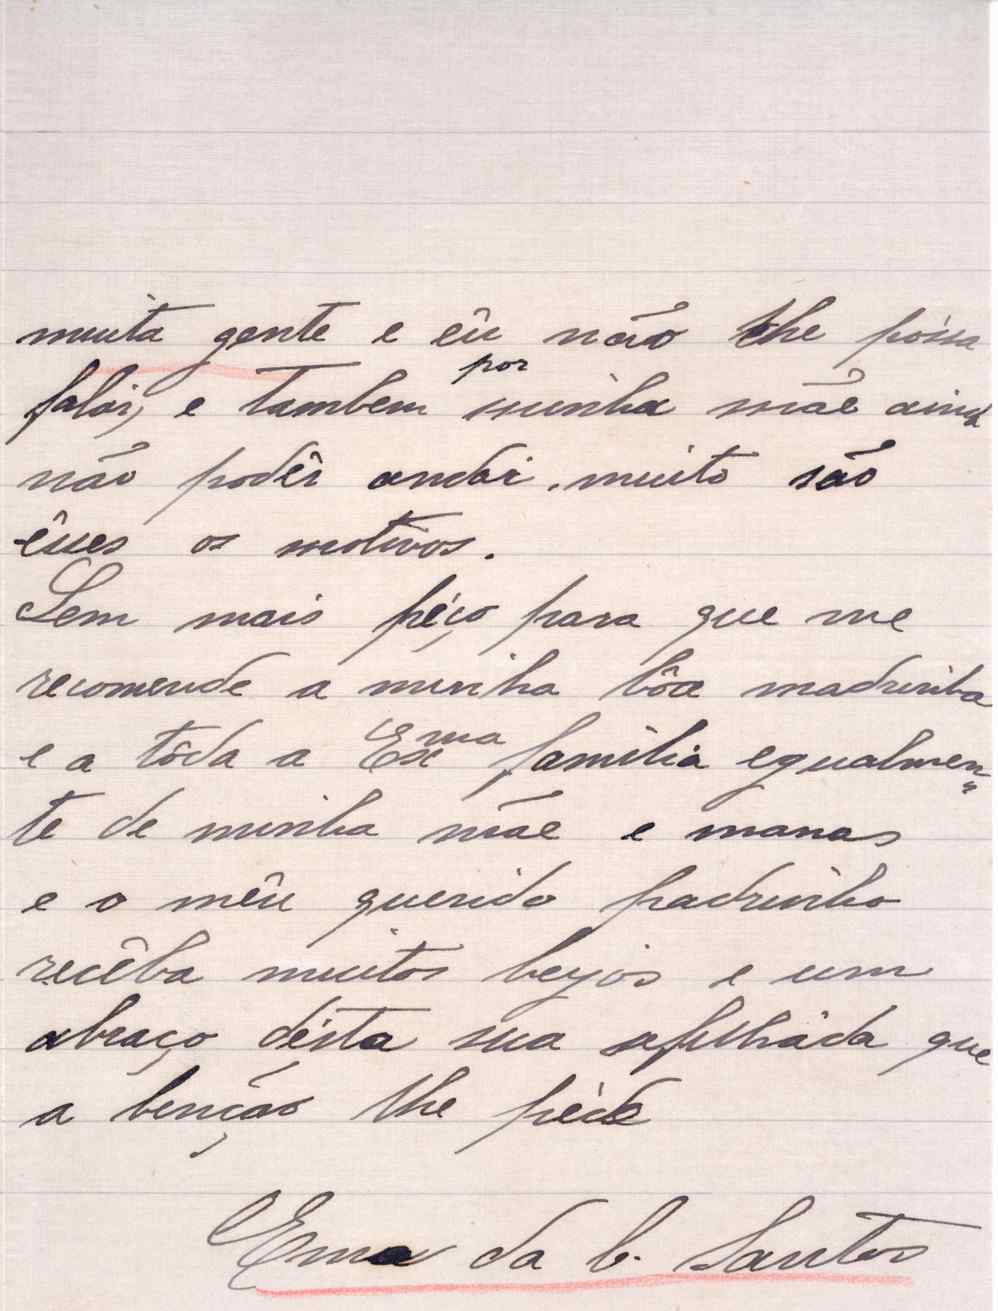 muita gente e êu não lhe póssa
por
falár, e tambem minha mãe aind
não podêr andár muito são
êsses os motivos.
Sem mais péço para que me
recomende a minha bôa madrinha
e a tôda a Exma família egualmen
te de minha mãe e manas
e o mêu querido padrinho
recêba muitos beijos e um
abraço désta sua afilháda que
a benção lhe péde
Ema da C. Santos